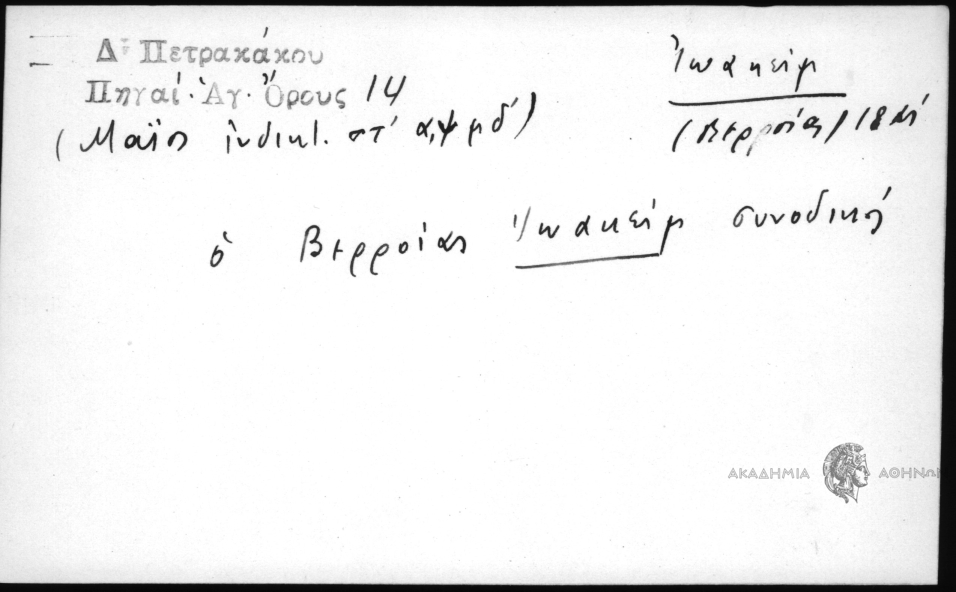 Δ. Πετρακάκου
Πηγαί· Ἁγ. Ὄρους 14
(Μάϊος ἰνδικτ. στ΄ α,ψμδ΄)
Ἰωακείμ
(Βερροίας) 18
ὁ Βερροίας Ἰωακείμ συνοδικῇ
ΑΚΑΔΗΜΙΑ ΑΘΗΝΩΝ